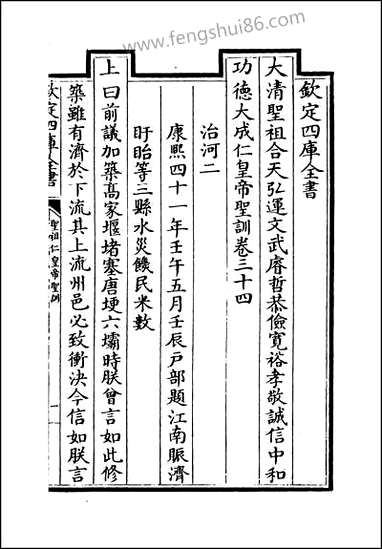 www.fengshui86.com
欽定四庫全書
大清聖祖合天弘運文武睿哲恭儉寛裕孝敬誠信中和
功德大成仁皇帝聖訓卷三十四
治河二
康熙四十一年壬午五月壬辰戶部題江南賑濟
盱眙等三縣水災饑民米數
上曰前議加築髙家堰堵塞唐埂六壩時朕曾言如此修
築雖有濟於下流其上流州邑必致衝決今信如朕言
欽定四庫全書
聖祖仁皇帝聖訓
一